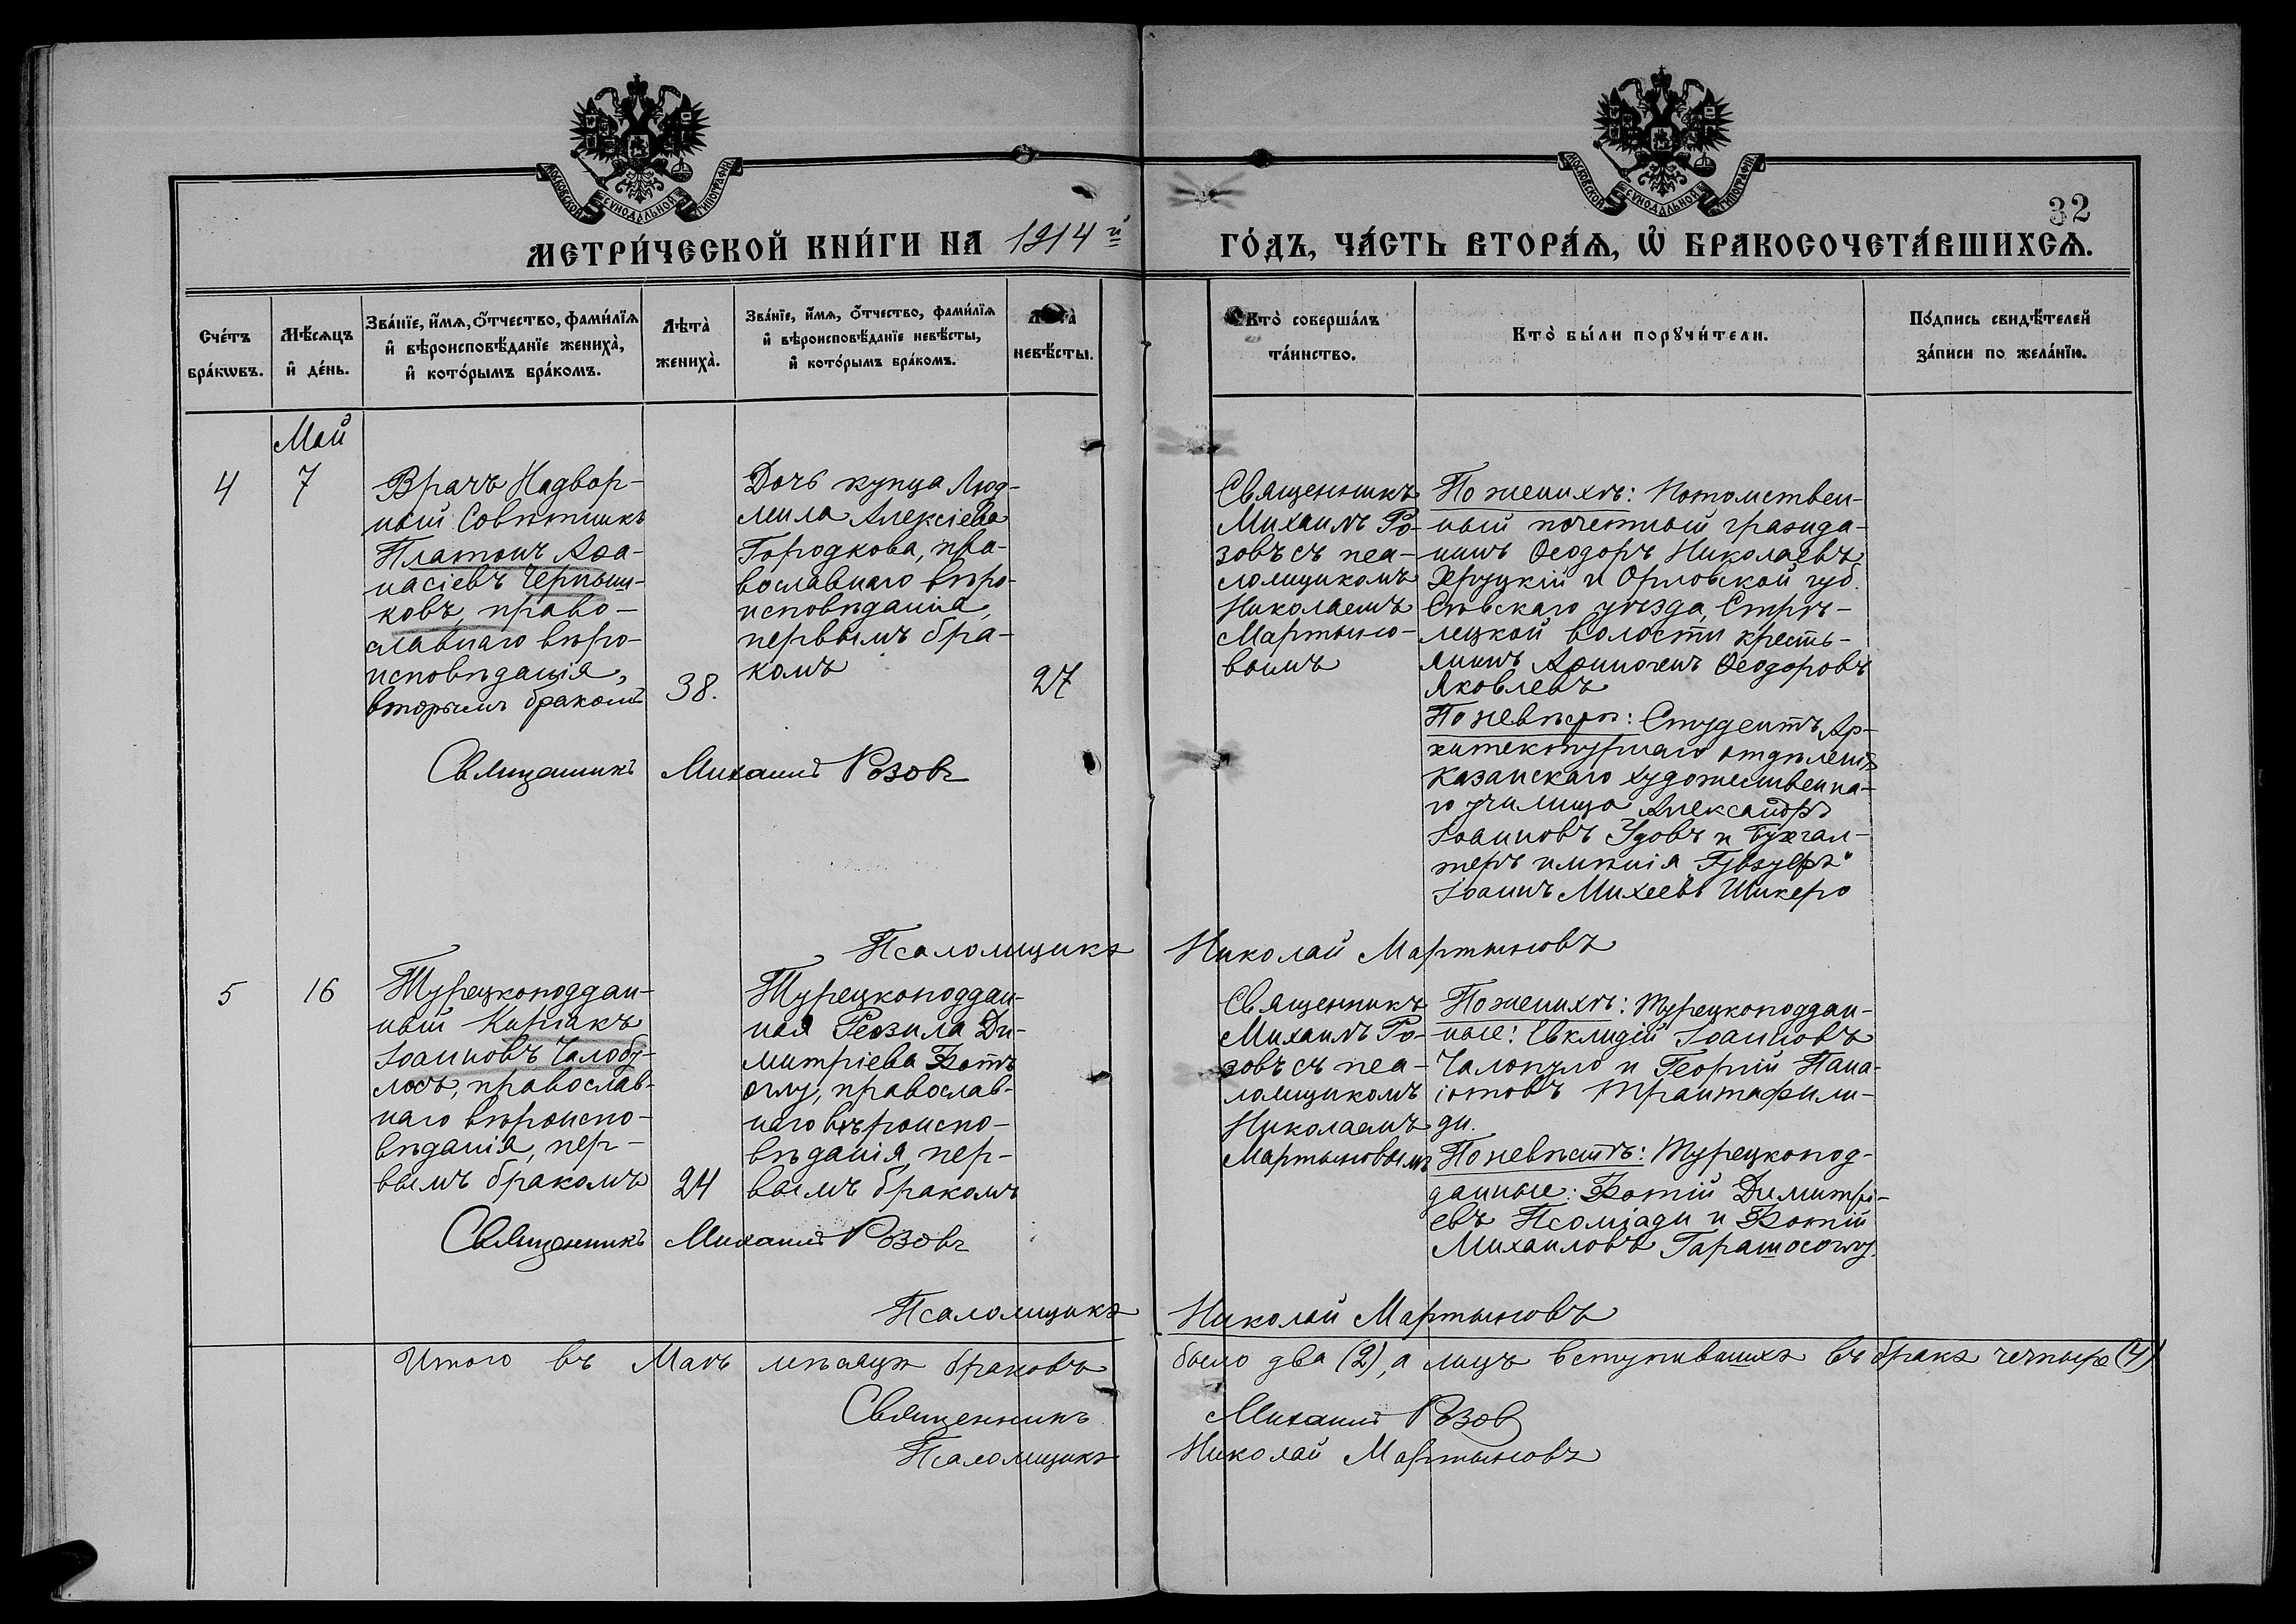 МОСКОВСКОЙ СѴНОДАЛЬНОЙ ТИПОГРАФІИ
МОСКОВСКОЙ СѴНОДАЛЬНОЙ ТИПОГРАФІИ
32
МЕТРИ́ЧЕСКОЙ КНИ́ГИ НА 1914 й ГО́ДЪ, ЧА́СТЬ ВТОРА́Ѧ, Ѡ҆ БРАКОСОЧЕТА́ВШИХСѦ.
Сче́тъ
бра́кѡвъ.
Мѣ́сѧцъ
и҆ де́нь.
Зва́нїе, и҆́мѧ, ѻ҆́тчество, фами́лїѧ
и҆ вѣроисповѣ́данїе жениха̀,
и҆ кото́рымъ бра́комъ.
Лѣта̀
жениха̀.
Зва́нїе, и҆́мѧ, ѻ҆́тчество, фами́лїѧ
и҆ вѣроисповѣ́данїе невѣ́сты,
и҆ кото́рымъ бра́комъ.
Лѣта̀
невѣ́сты.
Кто̀ соверша́лъ
та́инство.
Кто̀ бы́ли порꙋчи́тели.
По́дпись свидѣ́телей
за́писи по жела́нїю.
Май
4
7
Врачъ Надвор-
ный Совѣтникъ
Платонъ Афа-
насіевъ Черныш-
ковъ, право-
славнаго вѣро-
исповѣданія,
вторымъ бракомъ
38.
Дочь купца Люд-
мила Алексіева
Городкова, пра-
вославнаго вѣро-
исповѣданія,
первымъ бра-
комъ
27
Священникъ
Михаилъ Ро-
зовъ съ пса-
ломщикомъ
Николаемъ
Мартыно-
вымъ
По женихѣ: Потомствен-
ный почетный гражда-
нинъ Ѳеодоръ Николаевъ
Хруцкій и Орловской губ.
Сѣвскаго уѣзда, Стрѣ-
лецкой волости кресть-
янинъ Ѳеодоровъ
Яковлевъ
По невѣстѣ: Студентъ Ар-
хитектурнаго отдѣленія
Казанскаго художественна-
го училища Александръ
Іоанновъ Удовъ и Бухгал-
теръ имѣнія
Іоаннъ Михеевъ Шикеро
Священникъ Михаилъ Розовъ
Псаломщикъ Николай Мартыновъ
5
16
Турецкоподдан-
ный Киріакъ
Іоанновъ Чалобу-
лосъ, православ-
наго вѣроиспо-
вѣданія, пер-
вымъ бракомъ
24
Турецкоподдан-
ная Ди-
митріева Фотъ
оглу, православ-
наго вѣроиспо-
вѣданія, пер-
вымъ бракомъ
Священникъ
Михаилъ Ро-
зовъ съ пса-
ломщикомъ
Николаемъ
Мартыновымъ
По женихѣ: Турецкоподдан-
ные: Евклидій Іоанновъ
Чалопуло и Георгій Пана-
іотовъ Трантафили-
ди.
По невѣстѣ: Турецкопод-
данные: Фотій Димитрі-
евъ Псоміади и Фотій
Михаиловъ
Священникъ Михаилъ Розовъ
Псаломщикъ Николай Мартыновъ
Итого въ Маѣ мѣсяцѣ браковъ было два (2), а лицъ вступившихъ въ бракъ четыре (4)
Священникъ Михаилъ Розов
Псаломщикъ Николай Мартыновъ